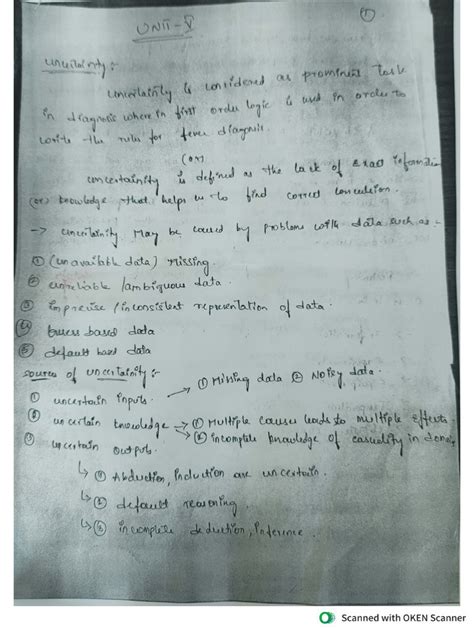 UNIT-V
①
Uncertainty :-
Uncertainity is considered as prominent Task
in diagnosis where in first order logic is used in order to
write the rules for fever diagnosis.
(or)
uncertainity is defined as the lack of Exact information
(or) knowledge that helps us to find correct conculsion.
→ uncertainity May be caused by problems with data such as:-
① (unavailable data) Missing.
② unreliable / ambiguous data.
③ imprecise / inconsistent representation of data.
④ Guess based data
⑤ default based data
Sources of uncertainity :-
① uncertain inputs. → ① Missing data ② Noisy data.
② uncertain knowledge → ① Multiple causes leads to multiple effects.
② incomplete knowledge of casuality in
③ uncertain outputs.
↳ ① Abduction, Induction are uncertain.
↳ ② default reasoning.
↳ ③ incomplete deduction, inference.
Scanned with OKEN Scanner